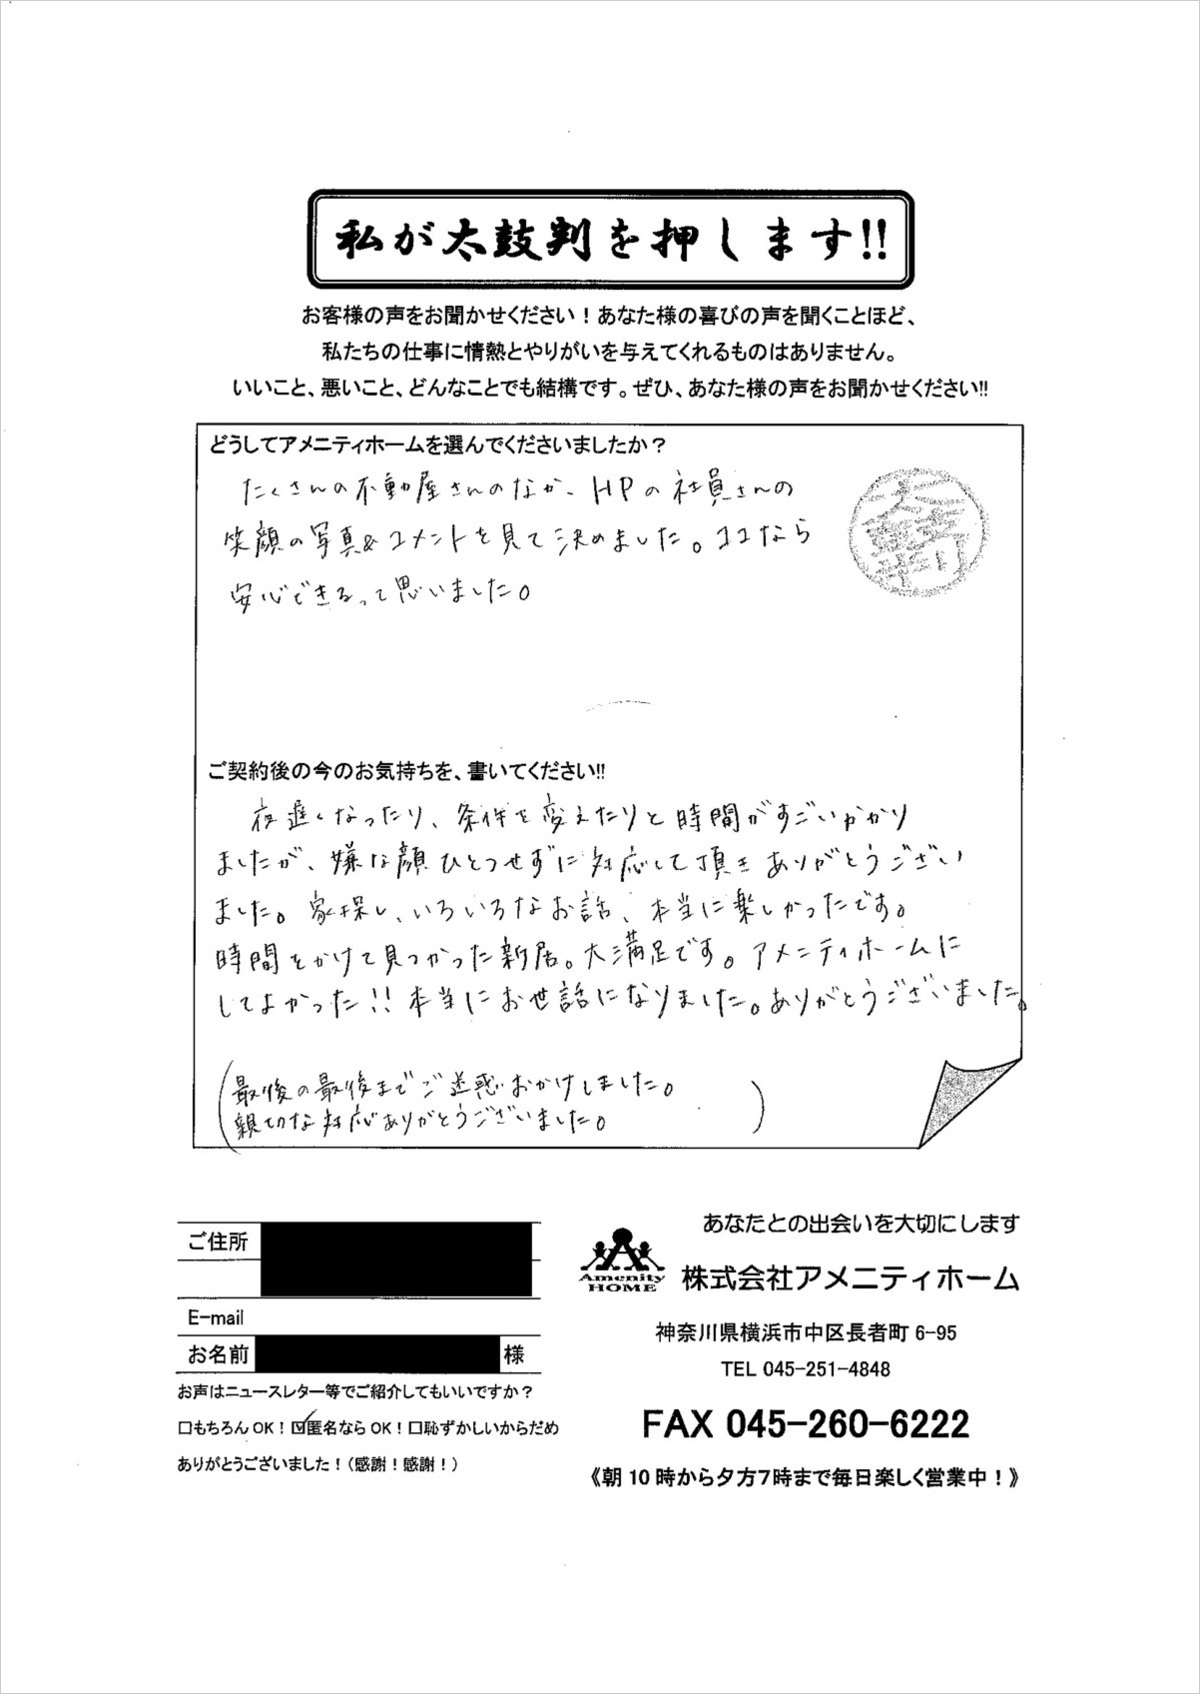 私が太鼓判を押します!!
お客様の声をお聞かせください！あなた様の喜びの声を聞くことほど、
私たちの仕事に情熱とやりがいを与えてくれるものはありません。
いいこと、悪いこと、どんなことでも結構です。ぜひ、あなた様の声をお聞かせください!!
どうしてアメニティホームを選んでくださいましたか？
たくさんの不動屋さんのなか、HPの社員さんの
笑顔の写真&コメントを見て決めました。ココなら
安心できるって思いました。
太鼓判
ご契約後の今のお気持ちを、書いてください!!
夜遅くなったり、条件を変えたりと時間がすごいかかり
ましたが、嫌な顔ひとつせずに対応して頂きありがとうござい
ました。家探し、いろいろなお話、本当に楽しかったです。
時間をかけて見つかった新居。大満足です。アメニティホームに
してよかった!!本当にお世話になりました。ありがとうございました。
(最後の最後までご迷惑おかけしました。
親切な対応ありがとうございました。)
ご住所
E-mail
お名前 様
お声はニュースレター等でご紹介してもいいですか？
□もちろんOK！☑匿名ならOK！□恥ずかしいからだめ
ありがとうございました！（感謝！感謝！）
あなたとの出会いを大切にします
Amenity
HOME
株式会社アメニティホーム
神奈川県横浜市中区長者町 6-95
TEL 045-251-4848
FAX 045-260-6222
《朝10時から夕方7時まで毎日楽しく営業中！》